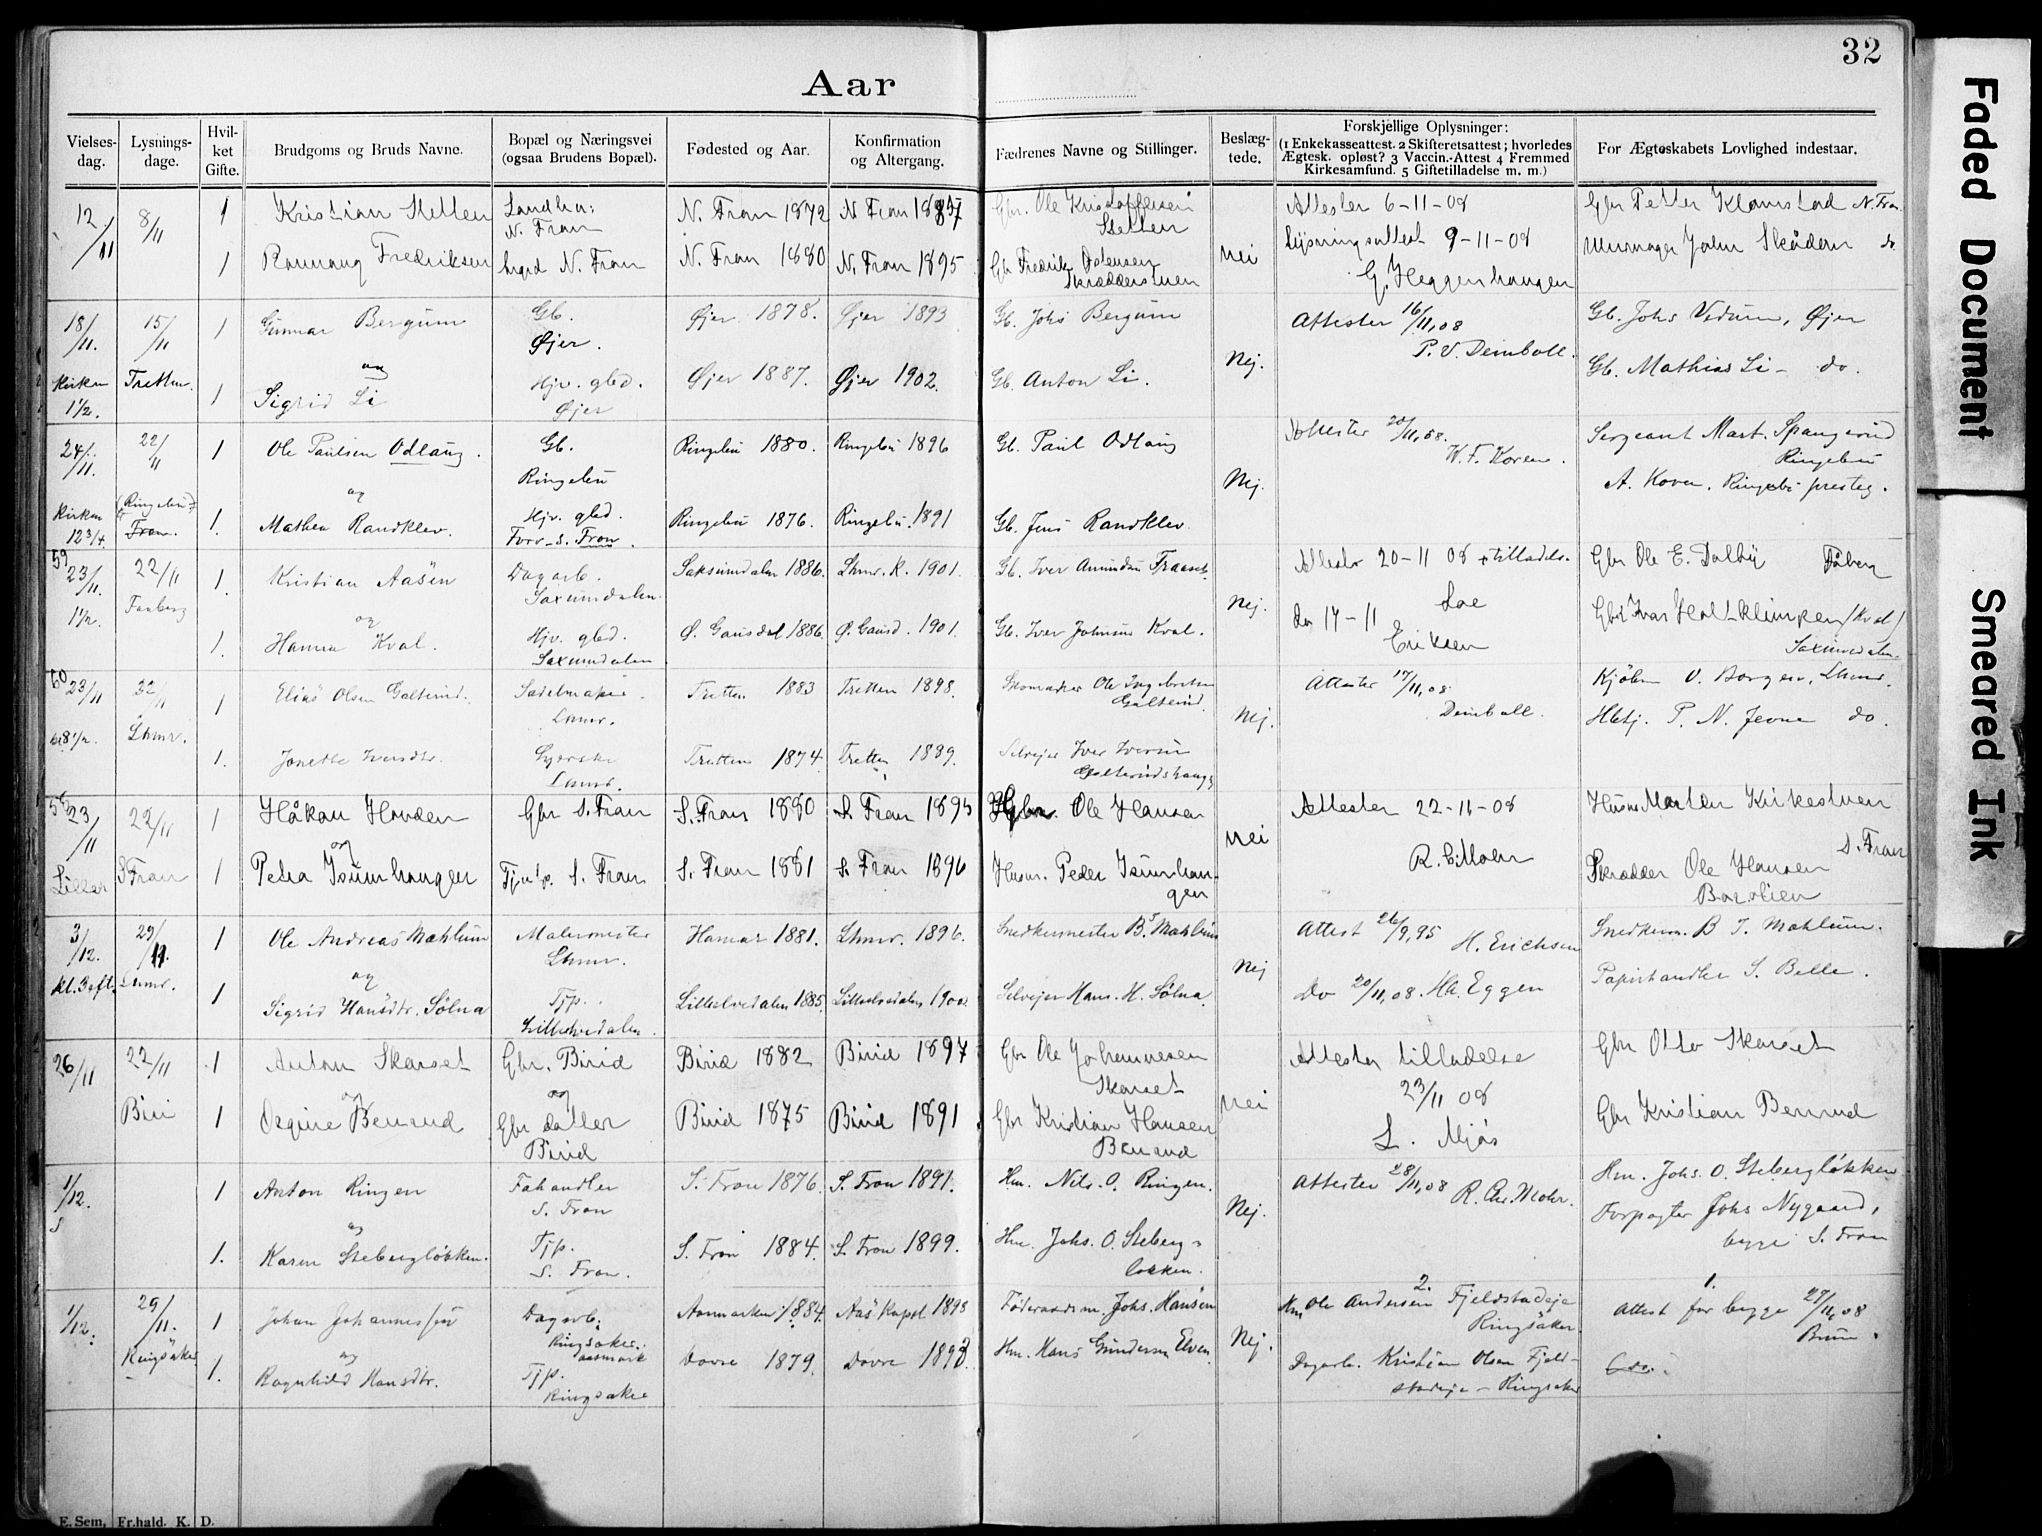 32
Aar
Vielses-
dag.
Lysnings-
dage.
Hvil-
ket
Gifte.
Brudgoms og Bruds Navne.
Bopæl og Næringsvei
(ogsaa Brudens Bopæl).
Fødested og Aar.
Konfirmation
og Altergang.
Fædrenes Navne og Stillinger.
Beslæg-
tede.
Forskjellige Oplysninger:
(1 Enkekasseattest. 2 Skifteretsattest; hvorledes
Ægtesk. opløst? 3 Vaccin.-Attest 4 Fremmed
Kirkesamfund. 5 Giftetilladelse m. m.)
For Ægteskabets Lovlighed indestaar.
12/11 8/11 1 Kristian Stellen Landha:
N. Fron
N. Fron 1872 N. Fron 1887 Gbr. Ole Kristoffersen
Stellen
Attester 6-11-08 Gbr Petter Klomstad N. Fron
1 Fredriksen N. Fron N. Fron 1880 N. Fron 1895 Gbr Fredrik
Skrædderstuen
nei Lysningsattest 9-11-08
G. Heggenhaugen
Murmager John Skåden do
18/11. 15/11 1 Gunnar Bergum Gb.
Øjer.
Øjer 1878. Øjer 1893 Gb. Johs Bergum Attester 16/11,08
P. V. Deinboll.
Gb. Johs Vedum, Øjer
og
Kirken
1 1/2.
Tretten. 1 Sigrid Li Hjv. gbd.
Øjer
Øjer 1887. Øjer 1902. Gb. Anton Li. Nej. Gb. Mathias Li - do.
24/11. 22/11 1 Ole Paulsen Odlaug. Gb.
Ringebu
Ringebu 1880. Ringebu 1896 Gb. Paul Odlaug Attester 20/11,08.
W. F. Koren.
Sergeant Mart. Spangrud
Ringebu
og
Kirken
12 3/4.
Ringebu
Fron.
1. Mathea Randklev. Hjv. gbd.
Forr - S. Fron.
Ringebu 1876. Ringebu. 1891 Gb. Jens Randklev. Nej. A. Koren. Ringebu presteg.
59
23/11.
1 1/2.
22/11
Faaberg
1. Kristian Aasen Dagarb.
Saxumdalen.
Saksumdalen 1886. Lhmr. K. 1901. Gb. Iver Amundsen Attester 20-11 08 + tilladels. Gbr Ole E. Dalby Fåberg
og
1. Hanna Kval. Hjv. gbd.
Saxumdalen
Ø. Gausdal 1886. Ø. Gausd. 1901. Gb. Iver Johnsen Kval. Nej. 17-11
Eriksen
Gbr Ivar (Kval)
Saxumdalen.
60
23/11
8 1/2.
22/11
Lhmr.
1 Elias Olsen Galterud. Sadelmaker.
Lhmr.
Tretten 1883 Tretten 1898. Skomaker Ole Ingebretsen
Galterud.
Nej. Attester 17/11,08.
Deinboll.
Kjøbm O. Borgen, Lhmr.
Hbtj. P. N. Jevne do.
1. Jonette Iversdtr. Syerske
Lhmr.
Tretten 1874. Tretten 1889. Selvejer Iver Iversen
Galterudshaug
58
23/11
Liller
22/11
S Fron
1 Håkon Hovden Gbr S. Fron S. Fron 1880 S. Fron 1895 Gbr. Ole Hansen nei Attester 22-11-08
R. C. Mohr
Husm Morten Kirkestuen
S. Fron
og
1 Petra Isumhaugen Tjp. S. Fron S. Fron 1881 S. Fron 1896 Husm. Peder Isumhau-
gen
Skrædder Ole Hansen
3/12.
kl. 3 eft.
29/11.
Lhmr.
1 Ole Andreas Mæhlum Malermester
Lhmr.
Hamar 1881. Lhmr. 1896. Snedkermester B. Mæhlum Attest 26/9,95
H. Erichsen
Snedkerm. B J. Mæhlum.
og
1 Sigrid Hansdtr. Sølna Tjp.
Lilleelvedalen.
Lilleelvedalen 1885. Lilleelvedalen 1900. Selvejer Hans. H. Sølna. Nej Do 20/11,08. Eggen Papirhandler S. Belle.
26/11 22/11
Biri
1 Anton Skarset Gbr. Birid Birid 1882 Birid 1897 Gbr Ole Johannesen
Skarset
Attester tilladelse
23/11 08
L. Mjøs
Gbr Otto Skarset
og og
1 Osgine Berrud Gbr datter
Birid
Birid 1875 Birid 1891 Gbr Kristian Hansen
Berrud
nei Gbr Kristian Berrud
1/12.
S
1 Anton Ringen Fæhandler
S. Fron
S. Fron 1876. S. Fron 1891. Hm. Nils. O. Ringen. Nej. Attester 28/11,08
R. Chr. Mohr.
Hm. Johs. O. Stebergløkken
Forpagter Johs Nygaard,
begge S. Fron
og
1. Karen Stebergløkken. Tjp.
S. Fron.
S. Fron 1884. S. Fron 1899. Hm. Johs. O. Steberg-
løkken.
1/12. 29/11.
Ringsaker
1 Johan Johannessen Dagarb.
Ringsaker.
aasmark
Aasmarken 1884. Aas Kapel 1898 Føderaadsm. Johs. Hansen Nej. 2.
Hm Ole Andersen Fjeldstadeje
Ringsaker.
1.
Attest for begge 27/11,08
Bruun.
og
1. Ragnhild Hansdtr. Tjp.
Ringsaker
Dovre 1879. Dovre 1893. Hm. Hans Gundersen Elven. Dagarb. Kristian Olsen Fjeld-
stadeje - Ringsaker
E. Sem, Fr.hald. K. D.
Faded Document
Smeared Ink